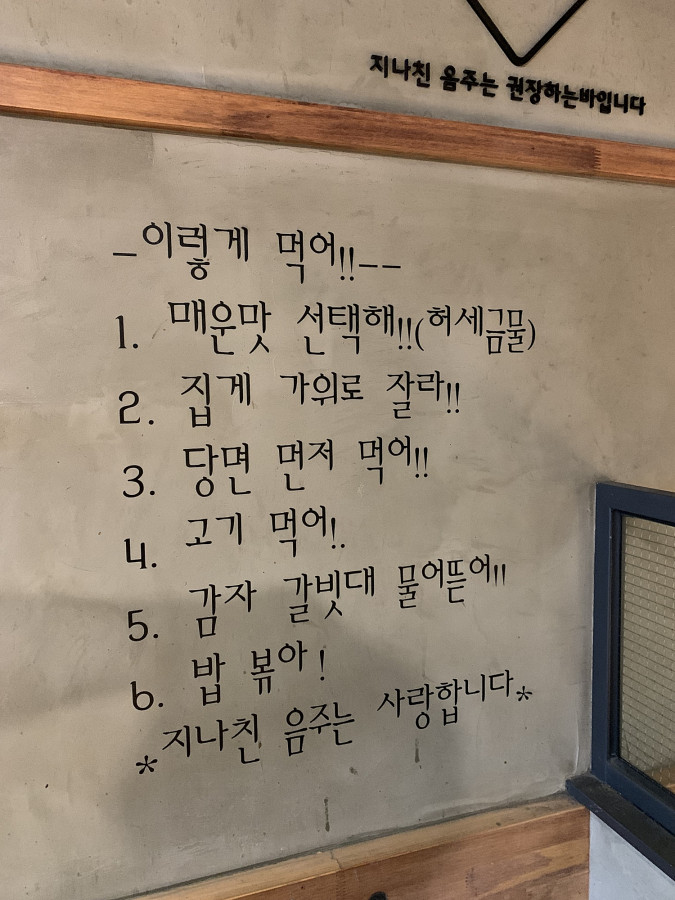 지나친 음주는 권장하는바입니다
-이렇게 먹어!!--
1. 매운맛 선택해!!(허세금물)
2. 집게 가위로 잘라!!
3. 당면 먼저 먹어!!
4. 고기 먹어!.
5. 감자 갈빗대 물어뜯어!!
6. 밥 볶아!
*지나친 음주는 사랑합니다*